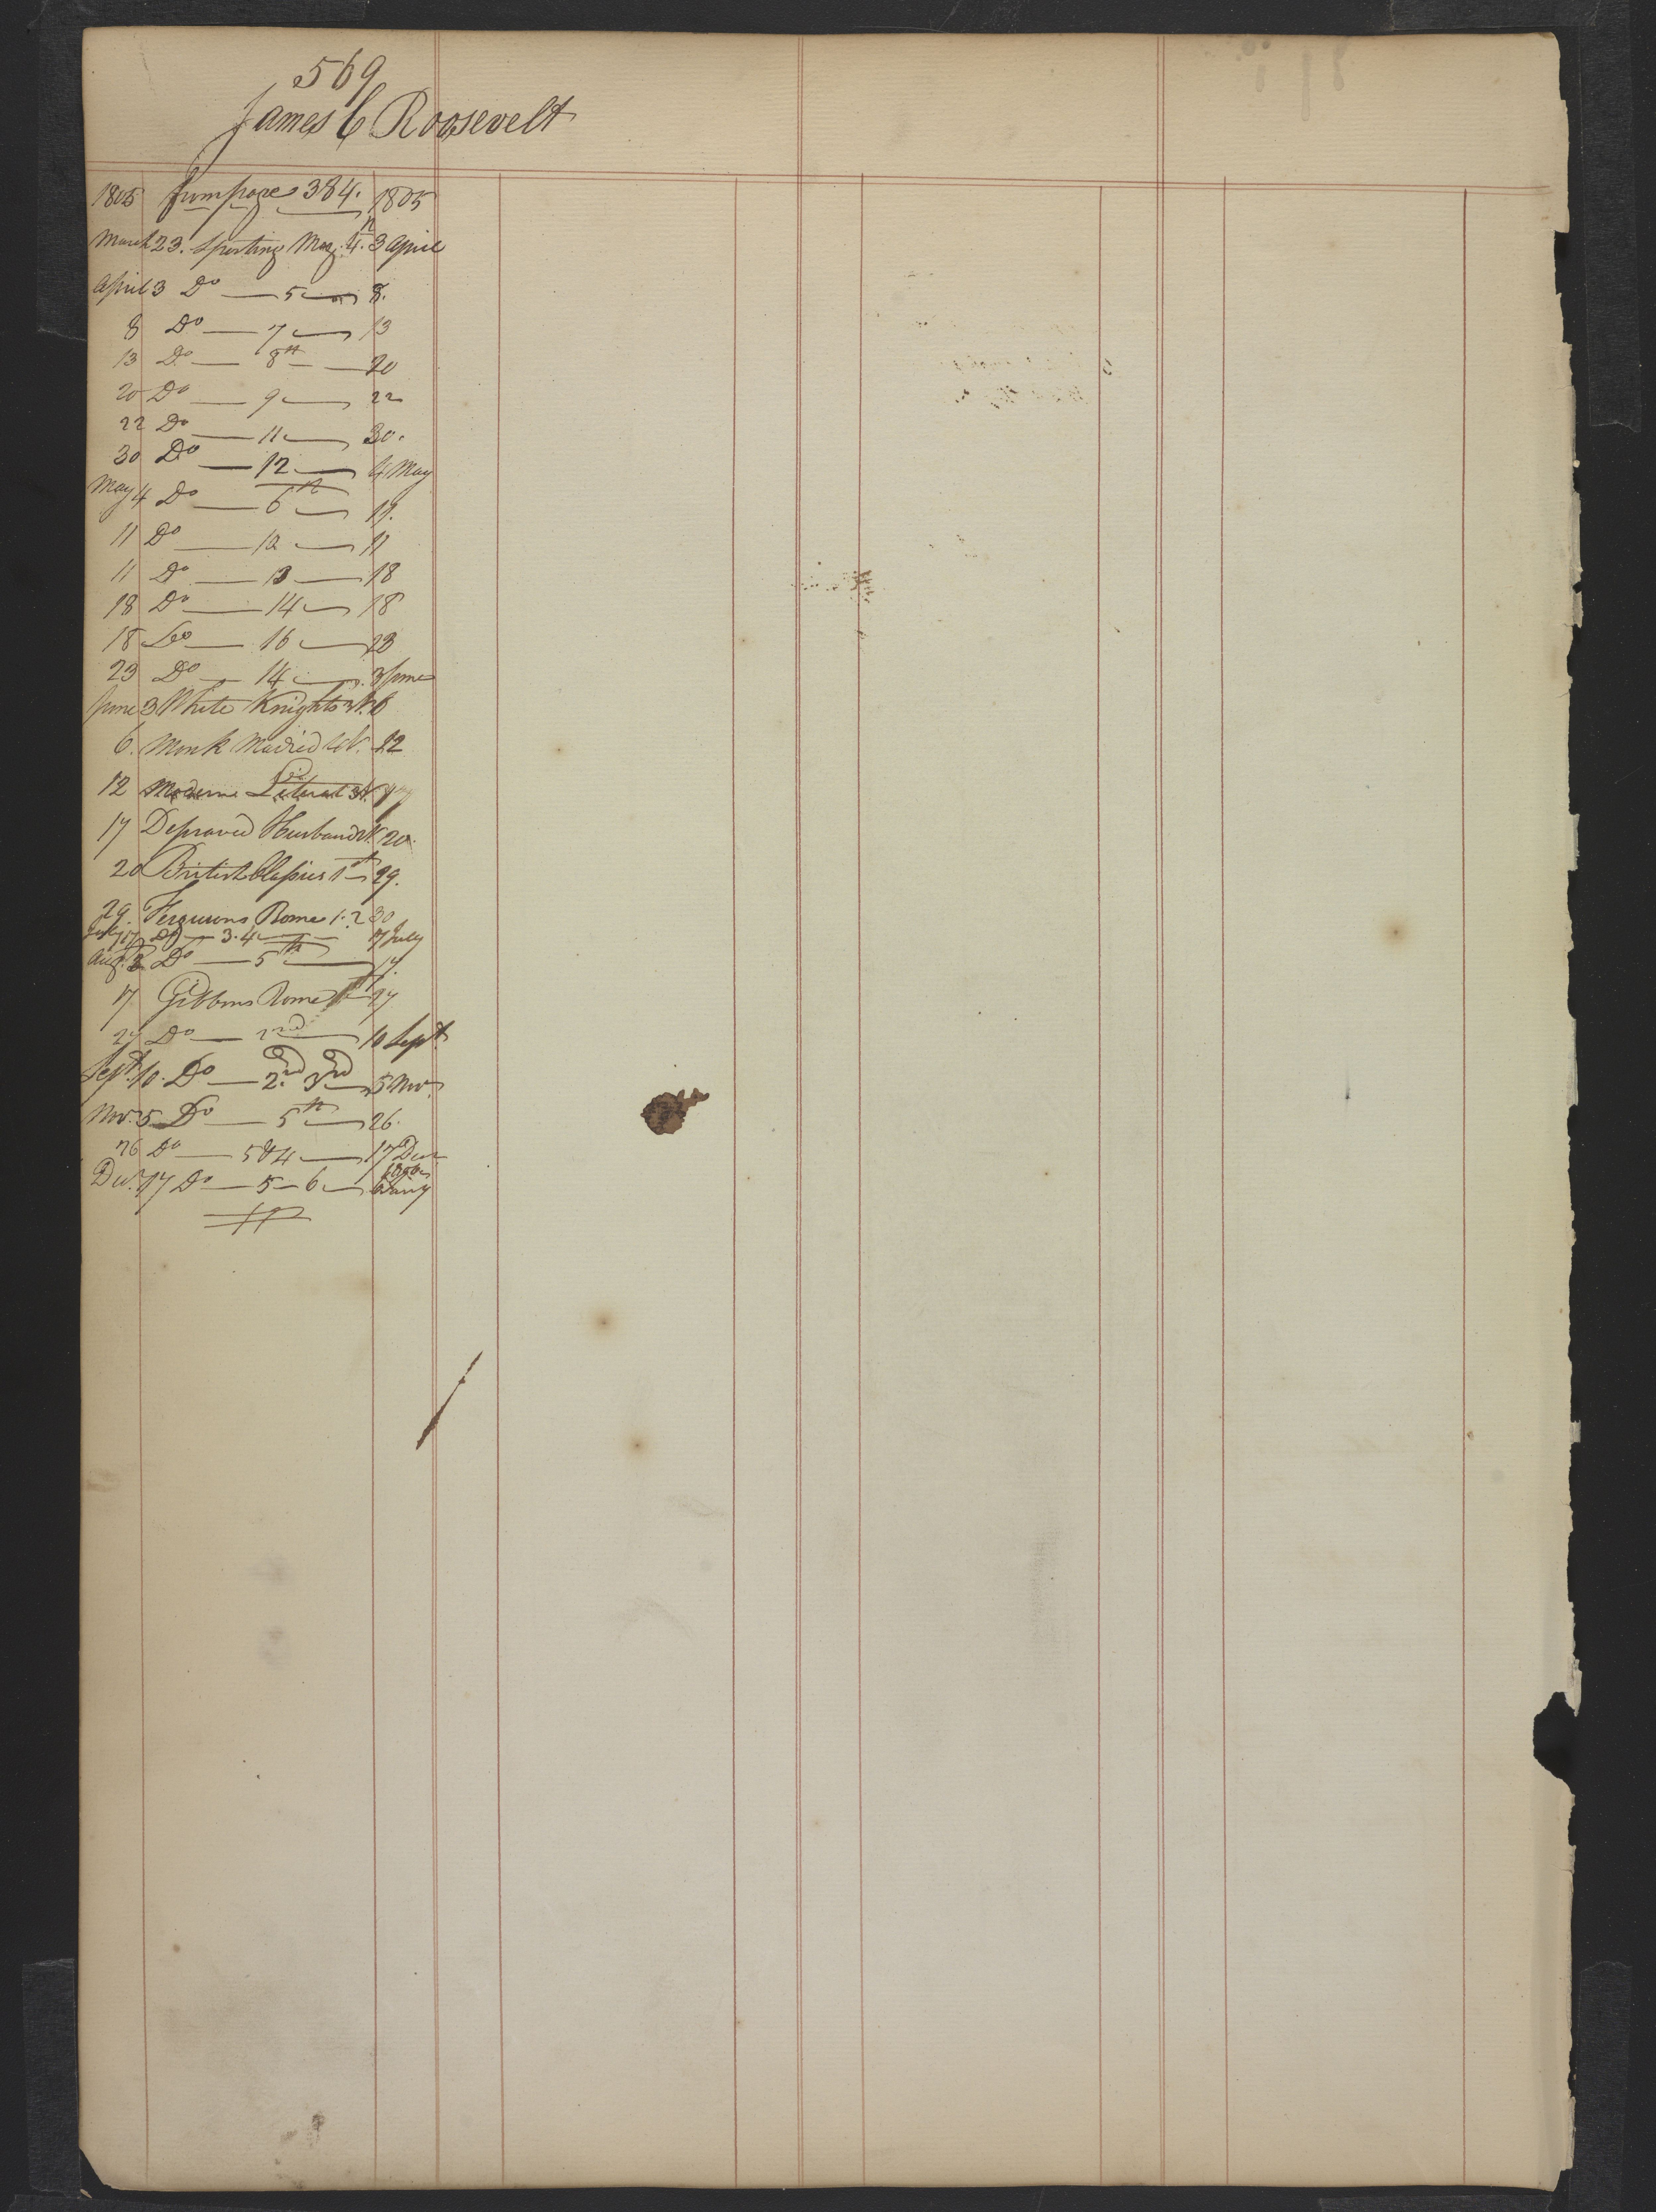 569
James C Roosevelt
1805 from page 384. 1805
March 23. Sporting Mag. 4.th 3 April
April 3 Do — 5 — 8.
8 Do — 7 — 13
13 Do — 8th — 20
20 Do — 9 — 22
22 Do — 11 — 30.
30 Do — 12 — 4 May
May 4 Do — 6th — 11.
11 Do — 12 — 11
11 Do — 13 — 18
18 Do — 14 — 18
18 Do — 16 — 23
23 Do — 14 — 3 June
June 3 White Knights 6
6. Monk Madrid 12
12 Moderne Literat 3 V. 17
17 Depraved Husband 20.
20 British Classics 1st 29.
29. Fergusons Rome 1.2 30
July 17 Do — 3.4 — 17 July
Aug. 2 Do — 5th — 17.
17 Gibbons Rome 1st 27
27 Do — 2nd — 10 Sept
Sept. 10. Do — 2nd 3rd — 5 Nov.
Nov. 5 Do — 5th — 26.
26 Do — 5 & 4 — 17 Decr
1806
Dec. 17 Do — 5 — 6 — 6 Jany